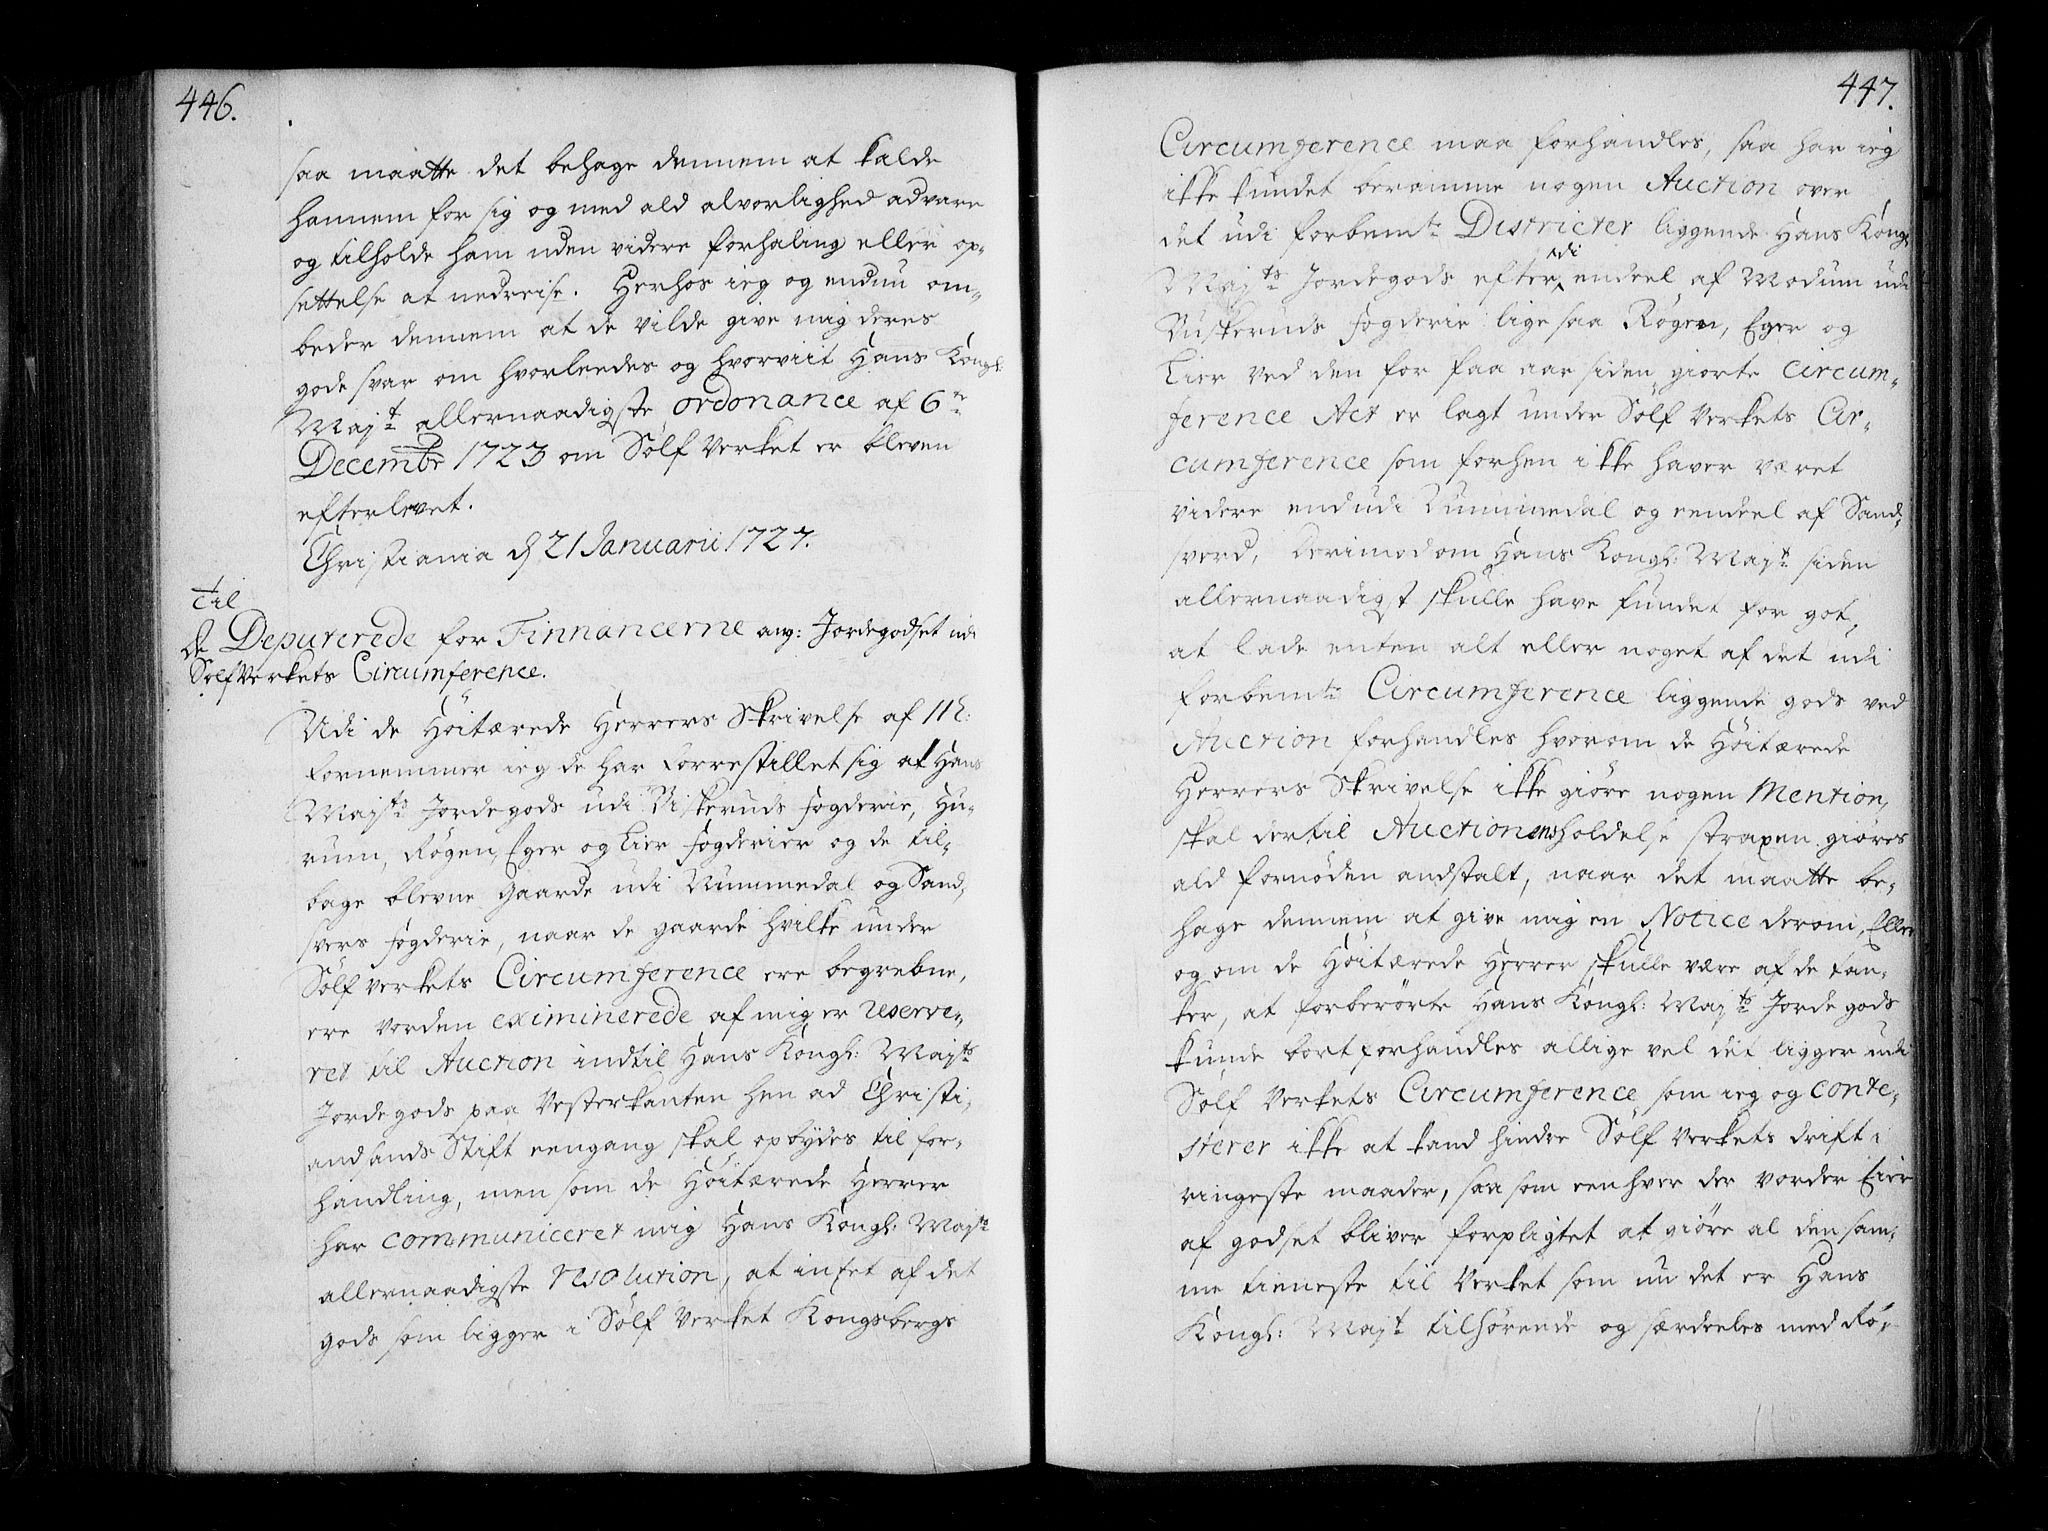 446.
saa maatte det behage dennem at kalde
hannem for sig og med ald alvorlighed advare
og tilholde ham uden videre forhaling eller op-
settelse at nedreise. Herhos ieg og enduu om-
beder dennem at de vilde give mig deres
gode svar om hvorleedes og hvorviit Hans Kongl:
Majt allernaadigste ordonance af 6te
Decembr 1723 om Sølf Verket er bleven
efterlevet.
Christiania d 21 Januarii 1727.
Til
de Deputerede for Finnancerne ang: Jordegodset udi
SølfVerkets Circumference.
Udi de Höitærede Herrers Skrivelse af 11t:
fornemmer ieg de har forrestillet sig at Hans
Majts Jordegods udi Buskeruds fogderie, Hu-
rum, Røgen, Eger og Lier fogderier og de til-
bage blevne Gaarde udi Nummedal og Sand-
svers fogderie, naar de gaarde hvilke under
Sølf verkets Circumference ere begrebne,
ere vorden eximinerede af mig er reserve-
ret til Auction indtil Hans Kongl: Majts
Jordegods paa Vesterkanten hen ad Christi-
ansands Stift eengang skal opbydes til for-
handling, men som de Höitærede Herrer
har communiceret mig Hans Kongl: Majts
allernaadigste resolution, at intet af det
gods som ligger i Sølf Verket Kongsbergs
447.
Circumference maa forhandles, saa har ieg
ikke kundet beramme nogen Auction over
det udi forbemte Districter liggende Hans Kongl
Majts Jordegods efterdi endeel af Modum udi
Buskeruds fogderie lige saa Røgen, Eger og
Lier ved den for faa aar siden giorte Circum-
ference Act er lagt under Sølf Verkets Cir-
cumference som forhen ikke haver været
videre end udi Nummedal og eendeel af Sand-
sverd, derimod om Hans Kongl: Majt siden
allernaadigst skulle have fundet for got,
at lade enten alt eller noget af det udi
forbemte Circumference liggende gods ved
Auction forhandles hvorom de Höitærede
Herrers Skrivelse ikke giøre nogen Mention,
skal dertil Auctionens holdelse straxen giøres
ald fornøden andstalt, naar det maatte be-
hage dennem at give mig en Notice derom, Eller
og om de Höitærede Herrer skulle være af de tan-
ker, at forberørte Hans Kongl: Majts Jordegods
kunde bortforhandles allige vel det ligger udi
Sølf Verkets Circumference som ieg og conte-
sterer ikke at kand hindre Sølf Verkets drift i
ringeste maader, saasom eenhver der vorder Eier
af godset bliver forpligtet at giøre al den sam-
me tieneste til Verket som nu det er Hans
Kongl: Majt tilhørende og særdeeles med Kø-